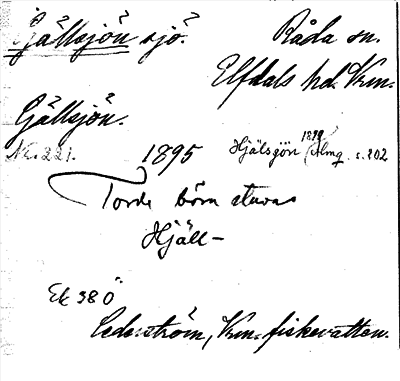 Gällsjön sjö. Råda sn.
Elfdals hd. Vrm.
Gällsjön.
NE. 221. 1895 Hjälsjön Almq. s. 202
Torde böra stavas
Hjäll-
Ek 38 Ö
Cederström, Vrm. fiskevatten.